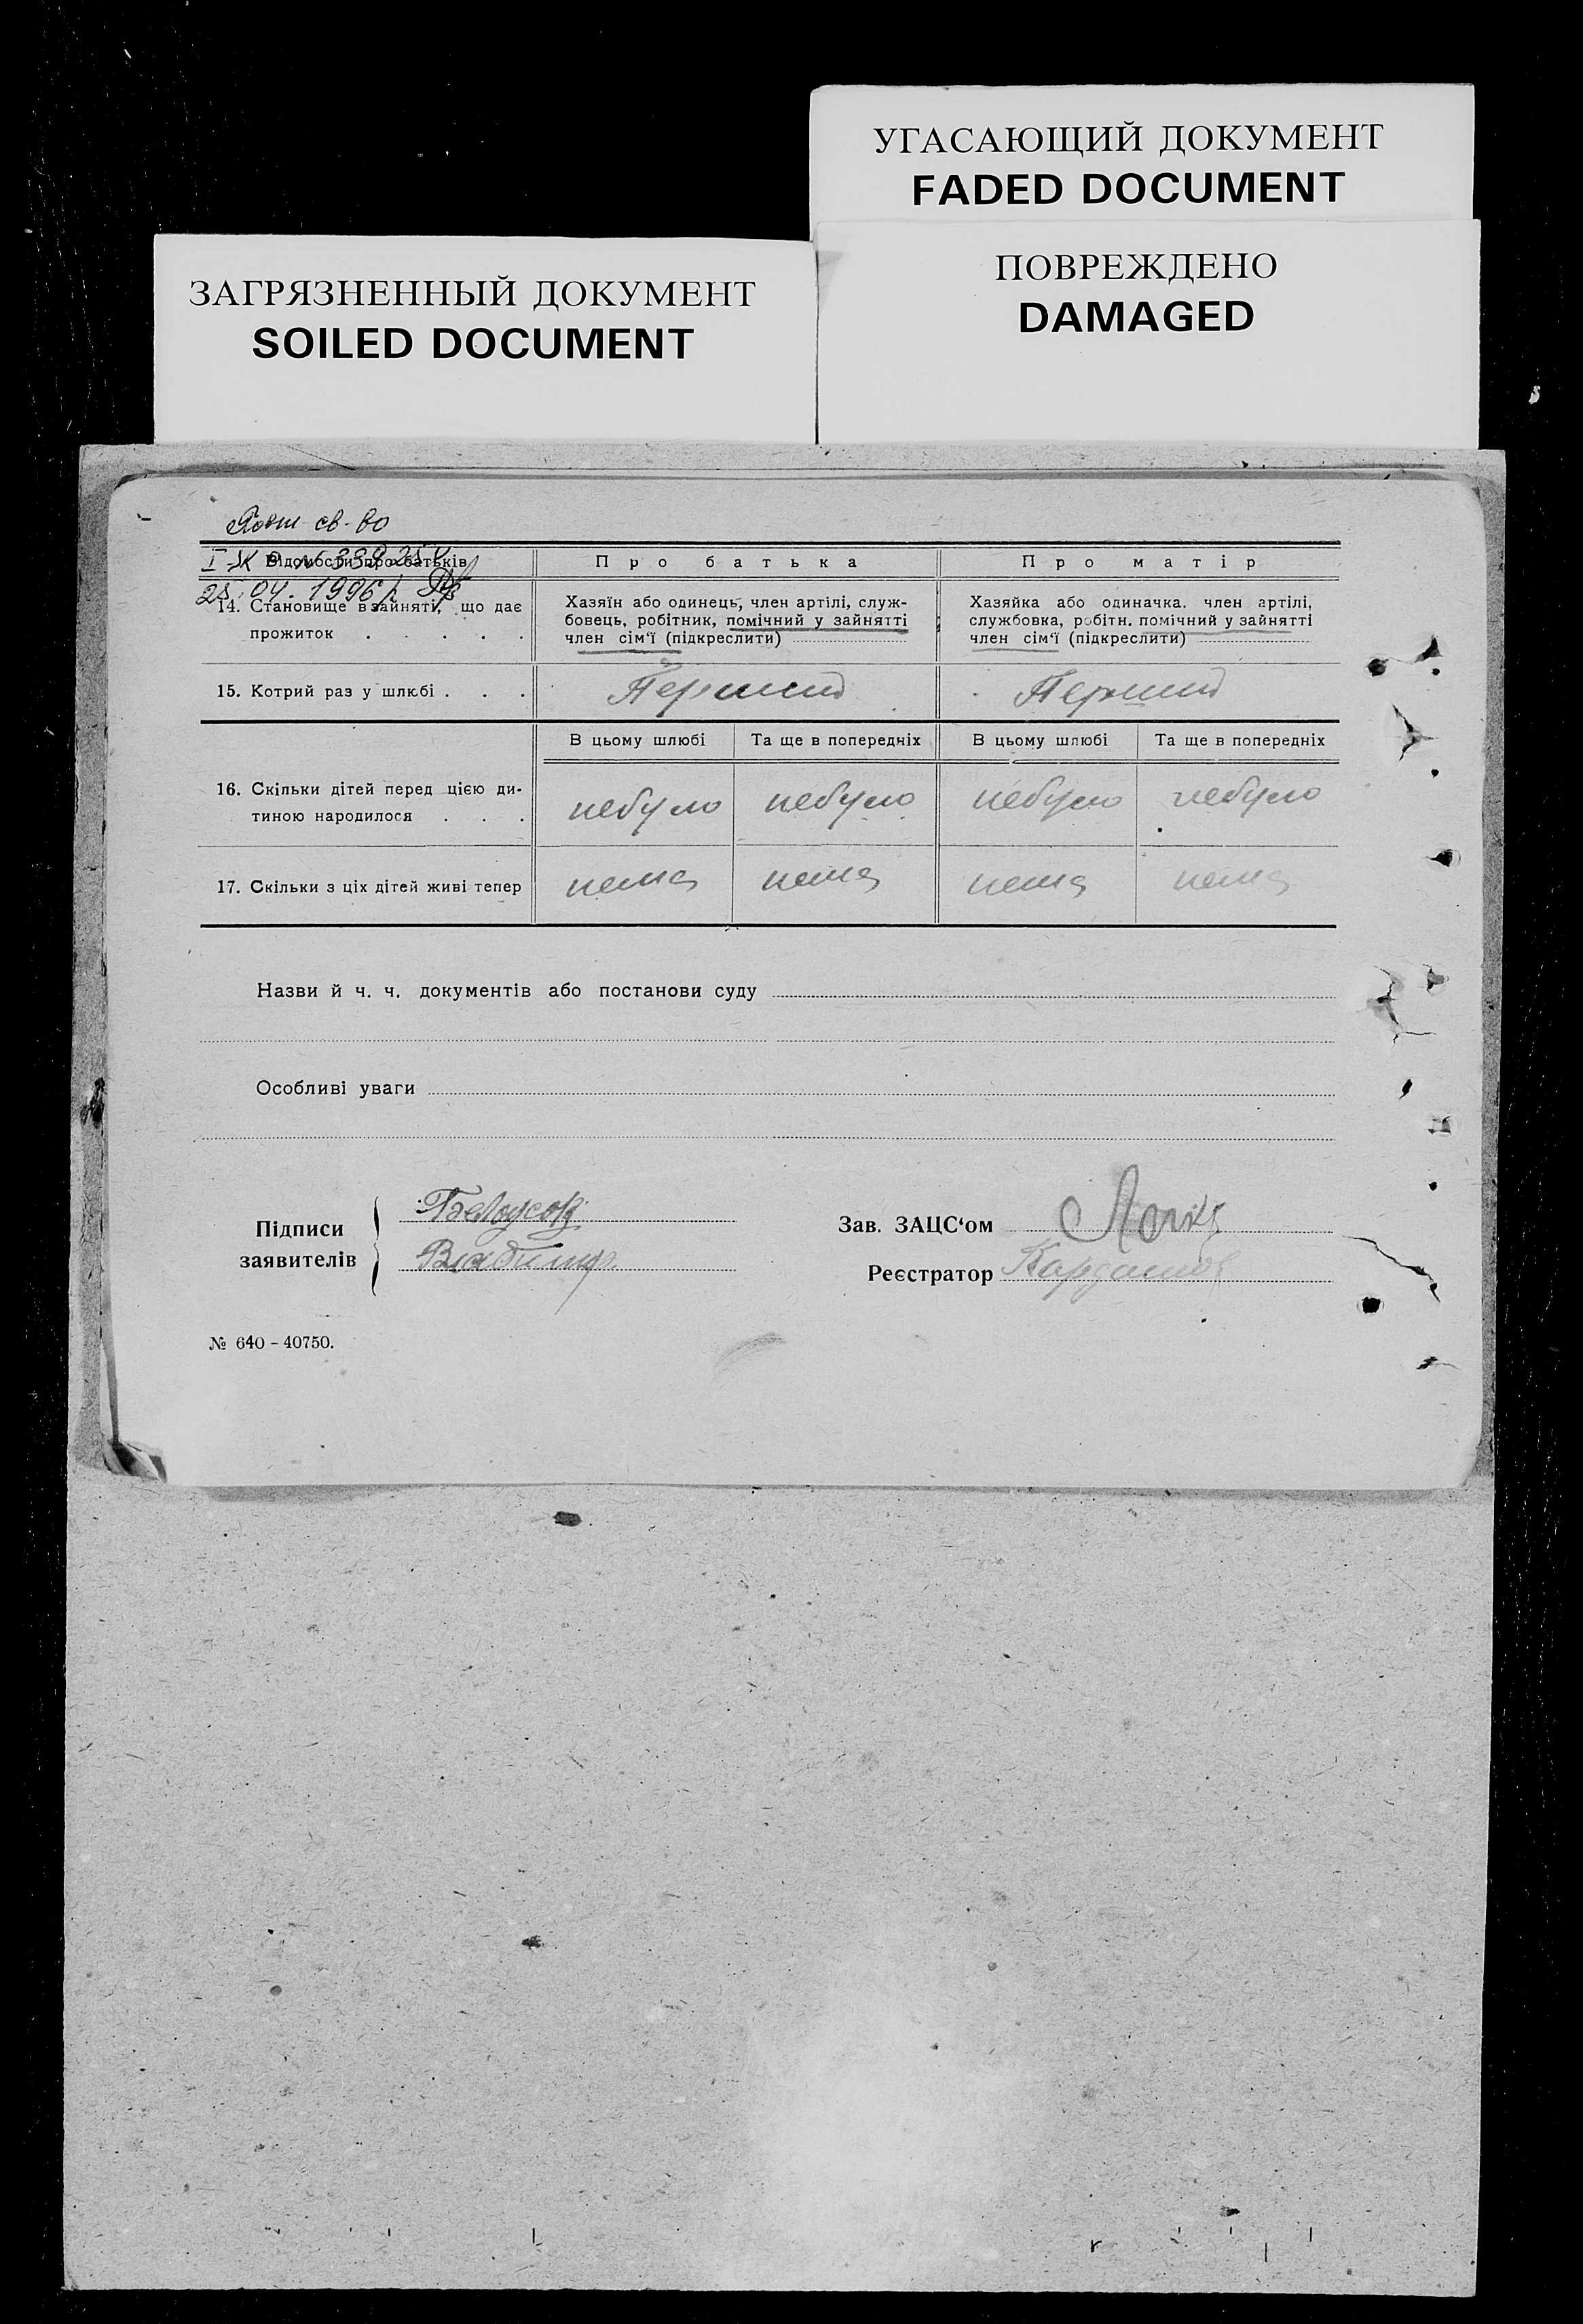 УГАСАЮЩИЙ ДОКУМЕНТ
FADED DOCUMENT
ПОВРЕЖДЕНО
DAMAGED
ЗАГРЯЗНЕННЫЙ ДОКУМЕНТ
SOILED DOCUMENT
св-во
Відомости про батьків
Про батька
Про матір
25.04.1996
14. Становище в зайняті, що дає
прожиток . . . . .
Хазяїн або одинець, член артілі, служ-
бовець, робітник, помічний у зайнятті
член сім‘ї (підкреслити)
Хазяйка або одиначка. член артілі,
службовка, робітн. помічний у зайнятті
член сім‘ї (підкреслити)
15. Котрий раз у шлюбі . . .
Перший
Перший
В цьому шлюбі
Та ще в попередніх
В цьому шлюбі
Та ще в попередніх
16. Скільки дітей перед цією ди-
тиною народилося . . .
небуло
небуло
небуло
небуло
17. Скільки з ціх дітей живі тепер
нема
нема
нема
нема
Назви й ч. ч. документів або постанови суду
Особливі уваги
Підписи
заявителів
Белоусов
Владимир
Зав. ЗАЦС‘ом
Реєстратор
№ 640 – 40750.